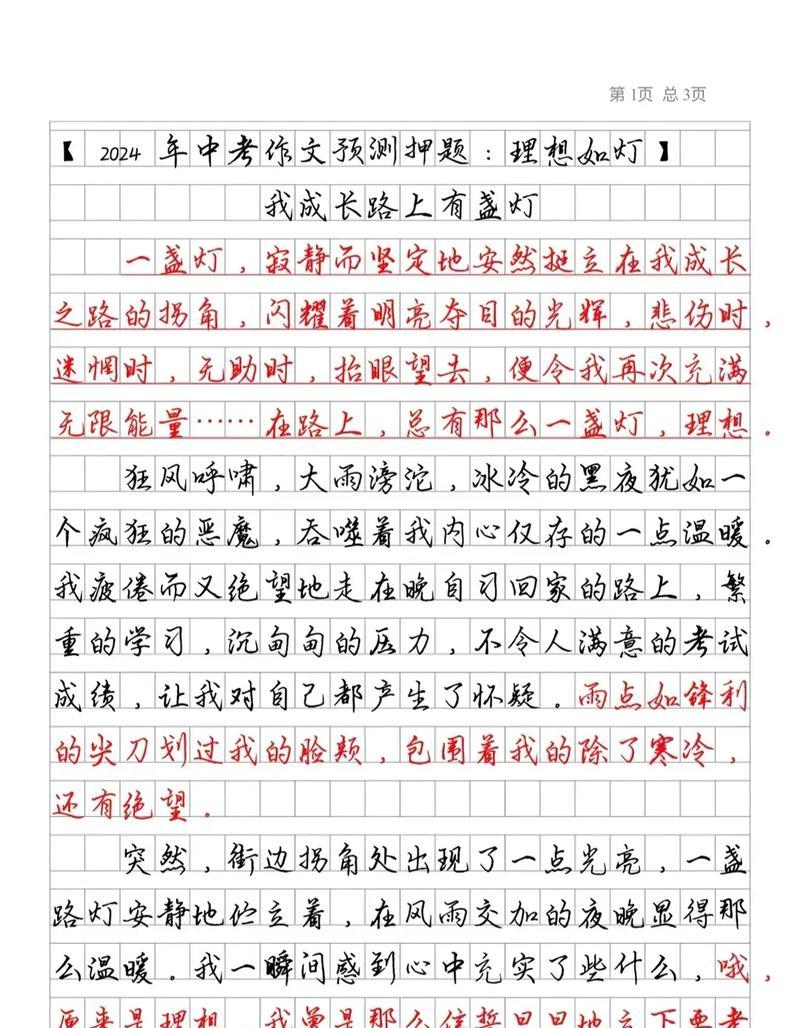 第1页 总3页
【 2024 年中考作文预测押题：理想如灯 】
我成长路上有盏灯
一盏灯，寂静而坚定地安然挺立在我成长
之路的拐角，闪耀着明亮夺目的光辉，悲伤时，
迷惘时，无助时，抬眼望去，便令我再次充满
无限能量……在路上，总有那么一盏灯，理想。
狂风呼啸，大雨滂沱，冰冷的黑夜犹如一
个疯狂的恶魔，吞噬着我内心仅存的一点温暖。
我疲倦而又绝望地走在晚自习回家的路上，繁
重的学习，沉甸甸的压力，不令人满意的考试
成绩，让我对自己都产生了怀疑。雨点如锋利
的尖刀划过我的脸颊，包围着我的除了寒冷，
还有绝望。
突然，街边拐角处出现了一点光亮，一盏
路灯安静地伫立着，在风雨交加的夜晚显得那
么温暖。我一瞬间感到心中充实了些什么，哦，
原来是理想，我曾是那么信誓旦旦地立下要考